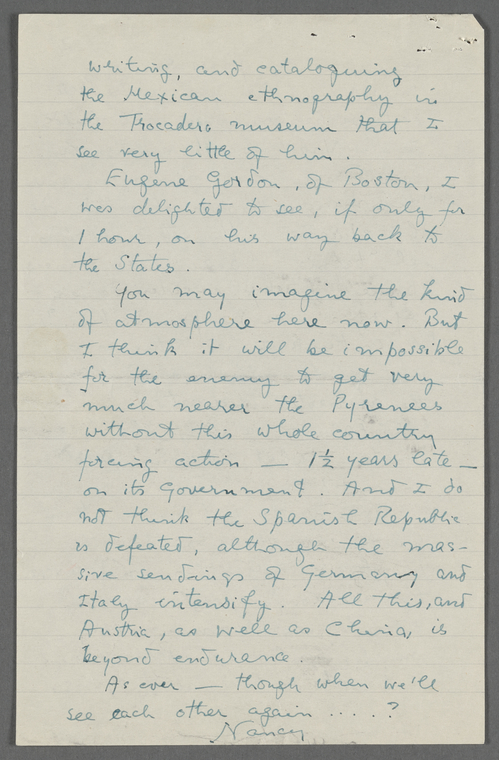 writing, and cataloguing
the Mexican ethnography in
the Trocadero museum that I
see very little of him.
Eugene Gordon, of Boston, I
was delighted to see, if only for
1 hour, on his way back to
the States.
You may imagine the kind
of atmosphere here now. But
I think it will be impossible
for the enemy to get very
much nearer the Pyrenees
without this whole country
forcing action — 1½ years late —
on its Government. And I do
not think the Spanish Republic
is defeated, although the mas-
sive sendings of Germany and
Italy intensify. All this, and
Austria, as well as China, is
beyond endurance.
As ever — though when we'll
see each other again ....?
Nancy